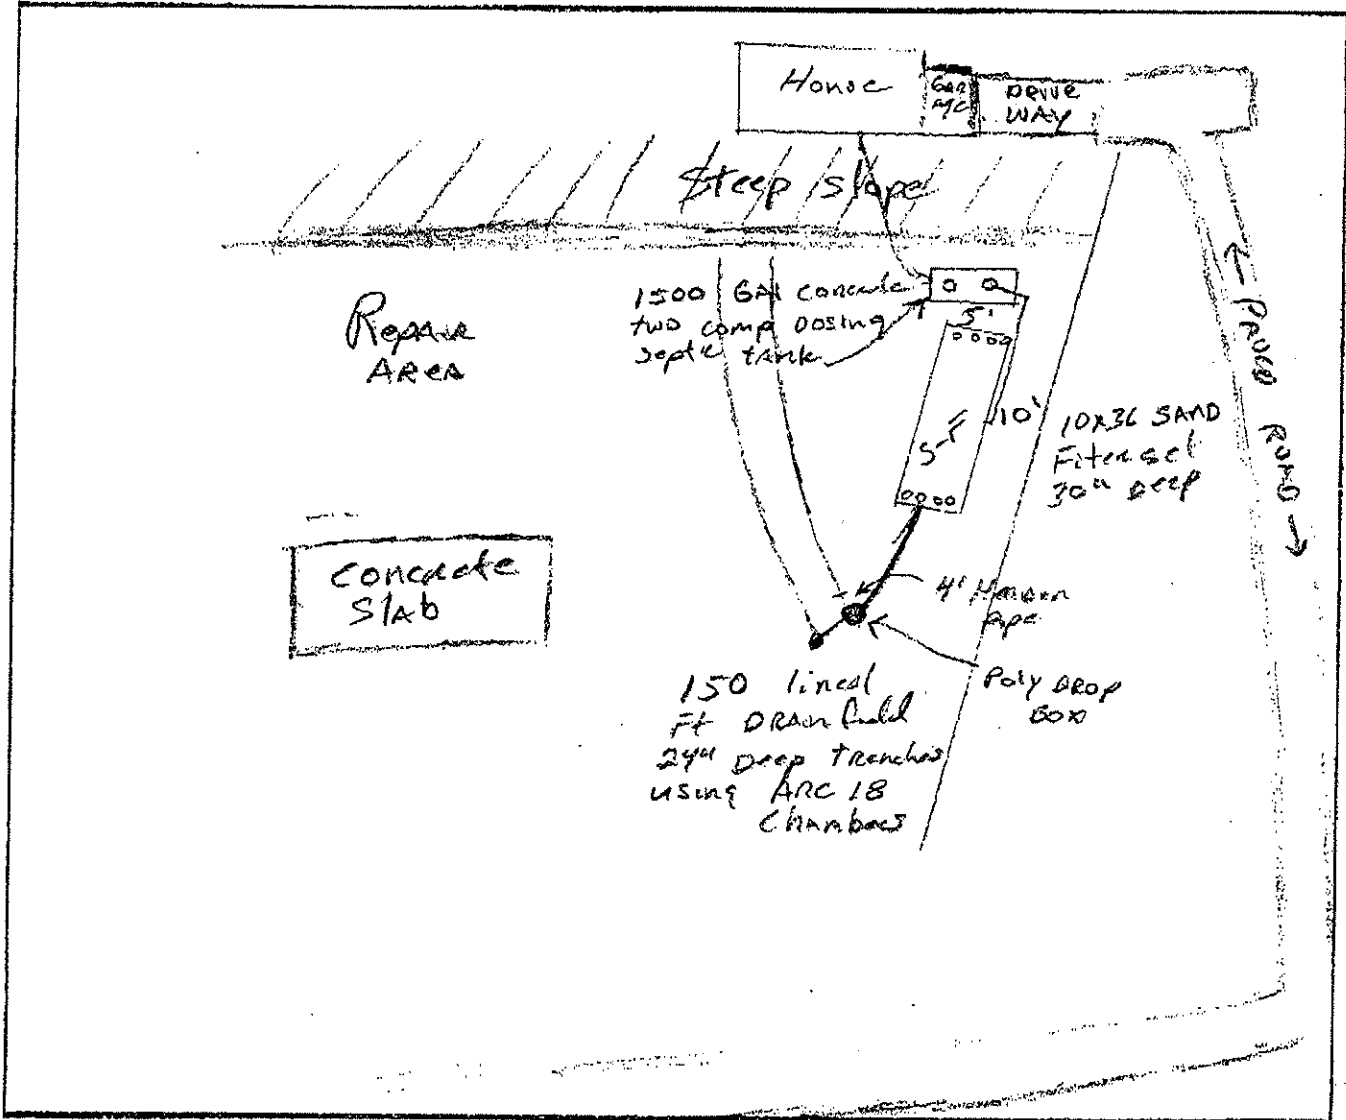 House
GAR
AGE
DRIVE
WAY
Steep slope
Repair
AREA
1500 GAl concrete
two comp DOSING
septic tank
5'
10'
5'
10x36 SAND
Filter set
30" Deep
← PAVED ROAD →
Concrete
Slab
4'
pipe
Poly DROP
BOX
150 lineal
Ft DRAinfield
24" Deep Trenches
using ARC 18
Chambers